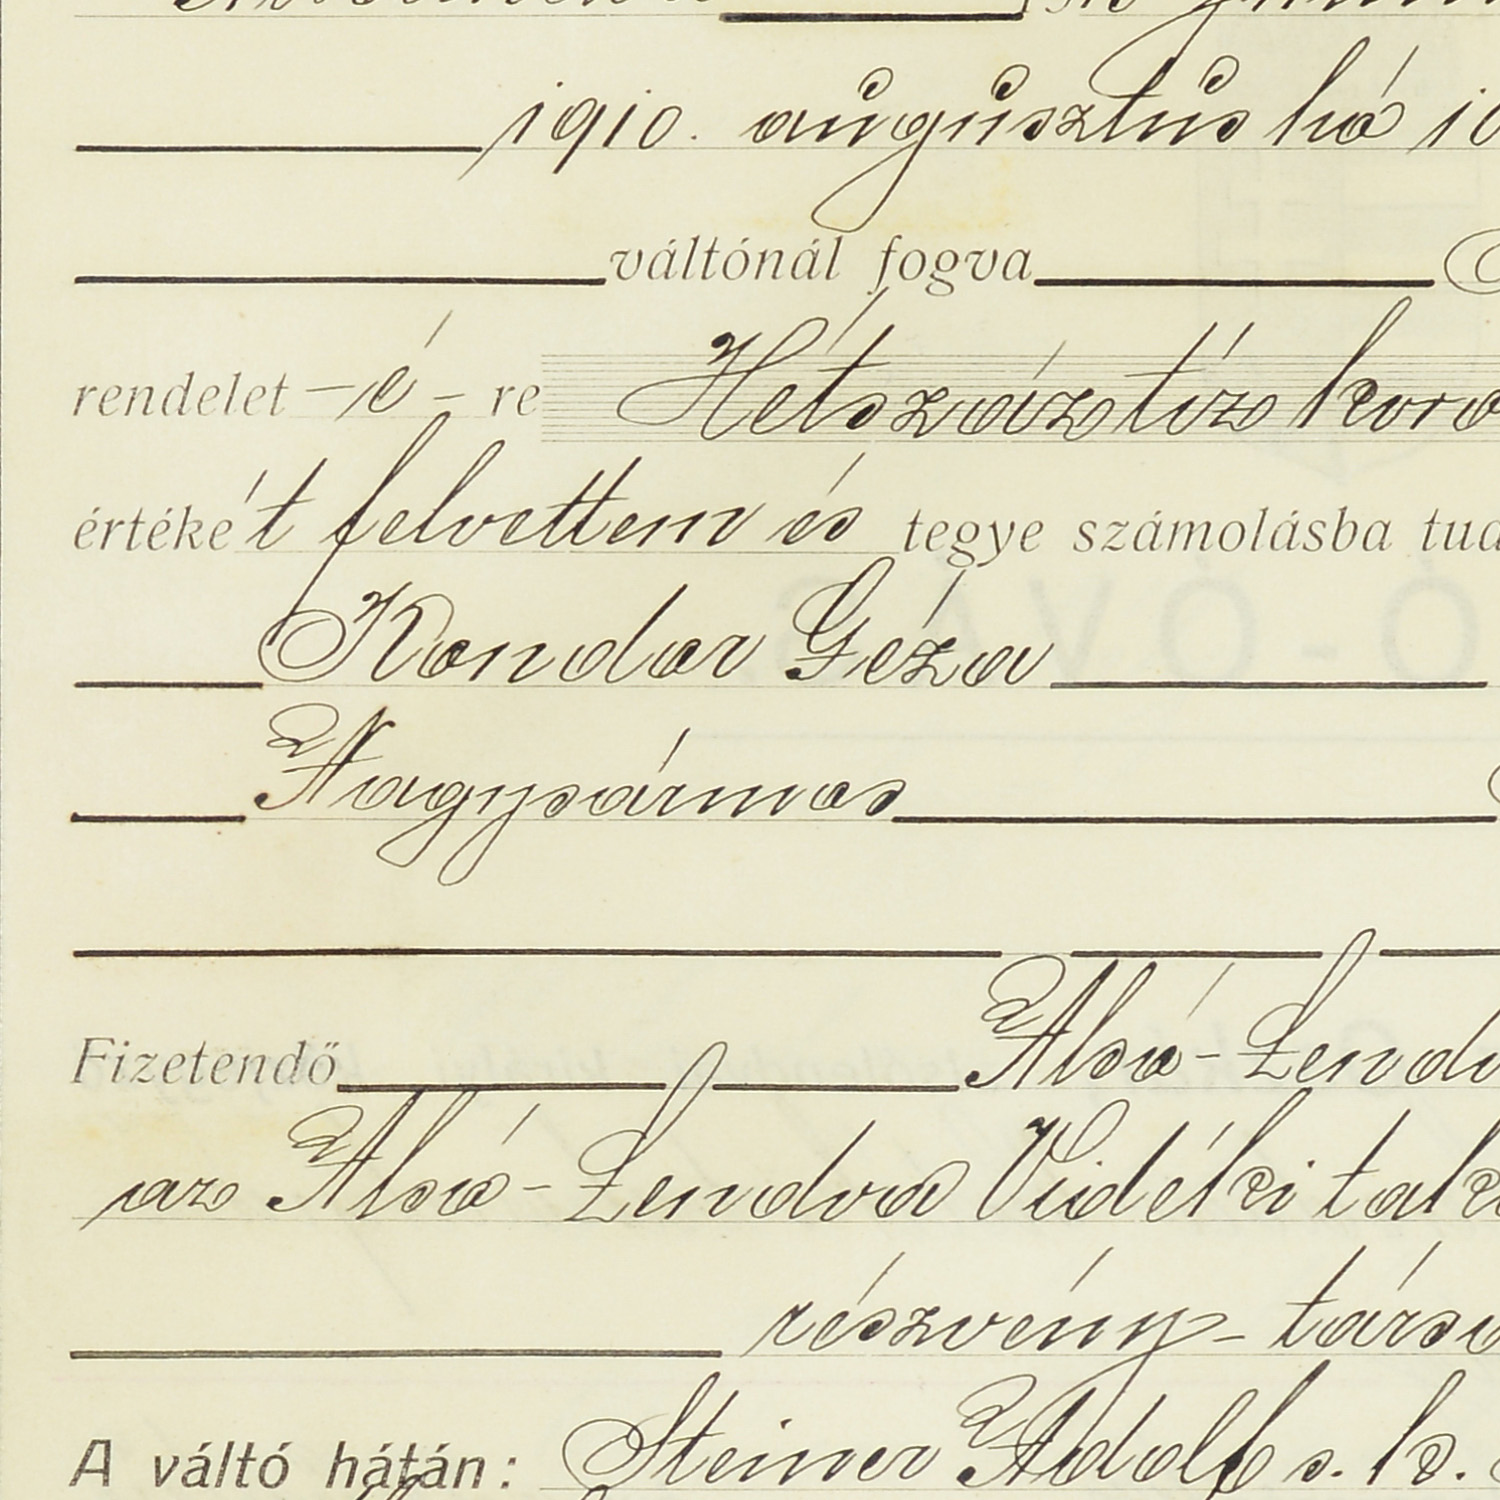 1910. augusztus hó 10
váltónál fogva
rendelet-é-re Hétszáztíz koro
értékét felvettem és tegye számolásba tud
Kondor Géza
Nagysármás
Fizetendő Alsó-Lendv
az Alsó-Lendva Vidéki tak
részvény-társu
A váltó hátán: Steiner Adolf s. k.